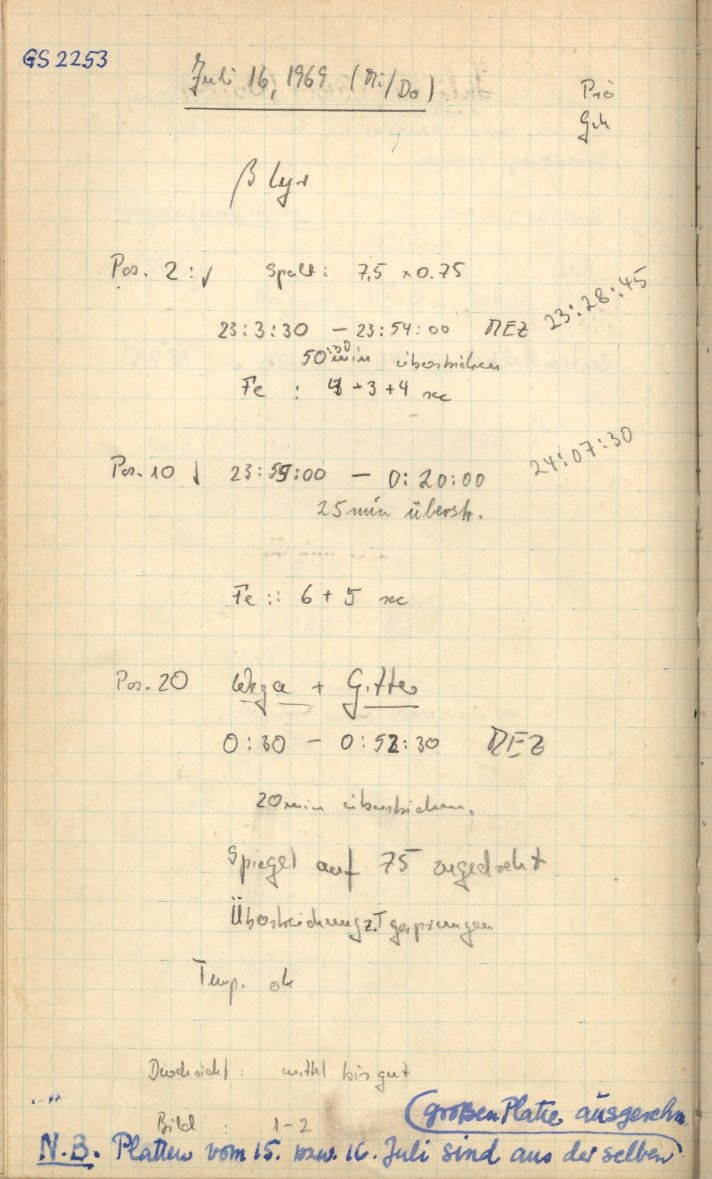 GS 2253
Juli 16, 1969 (Mi/Do)
Prö
Geh
β Lyr
Pos. 2 : ↓ Spalt: 7,5 x 0.75
23:3:30 – 23:54:00 MEZ 23:28:45
50:30 min überstrichen
Fe : + 3 + 4 sec
Pos. 10 ↓ 23:55:00 – 0:20:00 24:07:30
25 min überstr.
Fe :: 6 + 5 sec
Pos. 20 Wega + Gitter
0:30 – 0:52:30 MEZ
20 min überstrichen.
Spiegel auf 75 zugedreht
Überstreichung z.T gesprungen
Temp. ok
Durchsicht: mittel bis gut
Bild : 1-2
N.B. Platten vom 15. bzw. 16. Juli sind aus der selben
großen Platte ausgeschn